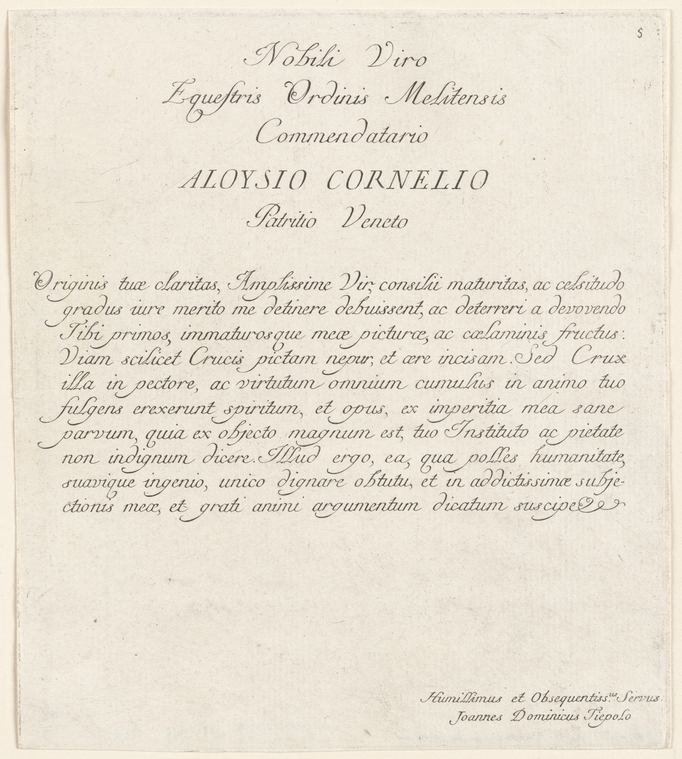 5
Nobili Viro
Equestris Ordinis Melitensis
Commendatario
ALOYSIO CORNELIO
Patritio Veneto
Originis tuæ claritas, Amplissime Vir, consilii maturitas, ac celsitudo
gradus iure merito me detinere debuissent, ac deterreri a devovendo
Tibi primos, immaturosque meæ picturæ, ac cælaminis fructus:
Viam scilicet Crucis pictam nepur, et ære incisam. Sed Crux
illa in pectore, ac virtutum omnium cumulus in animo tuo
fulgens erexerunt spiritum, et opus, ex imperitia mea sane
parvum, quia ex objecto magnum est, tuo Instituto ac pietate
non indignum dicere. Illud ergo, ea, qua polles humanitate,
suavique ingenio, unico dignare obtutu, et in addictissimæ subje-
ctionis meæ, et grati animi argumentum dicatum suscipe
Humillimus et Obsequentiss.us Servus
Joannes Dominicus Tiepolo